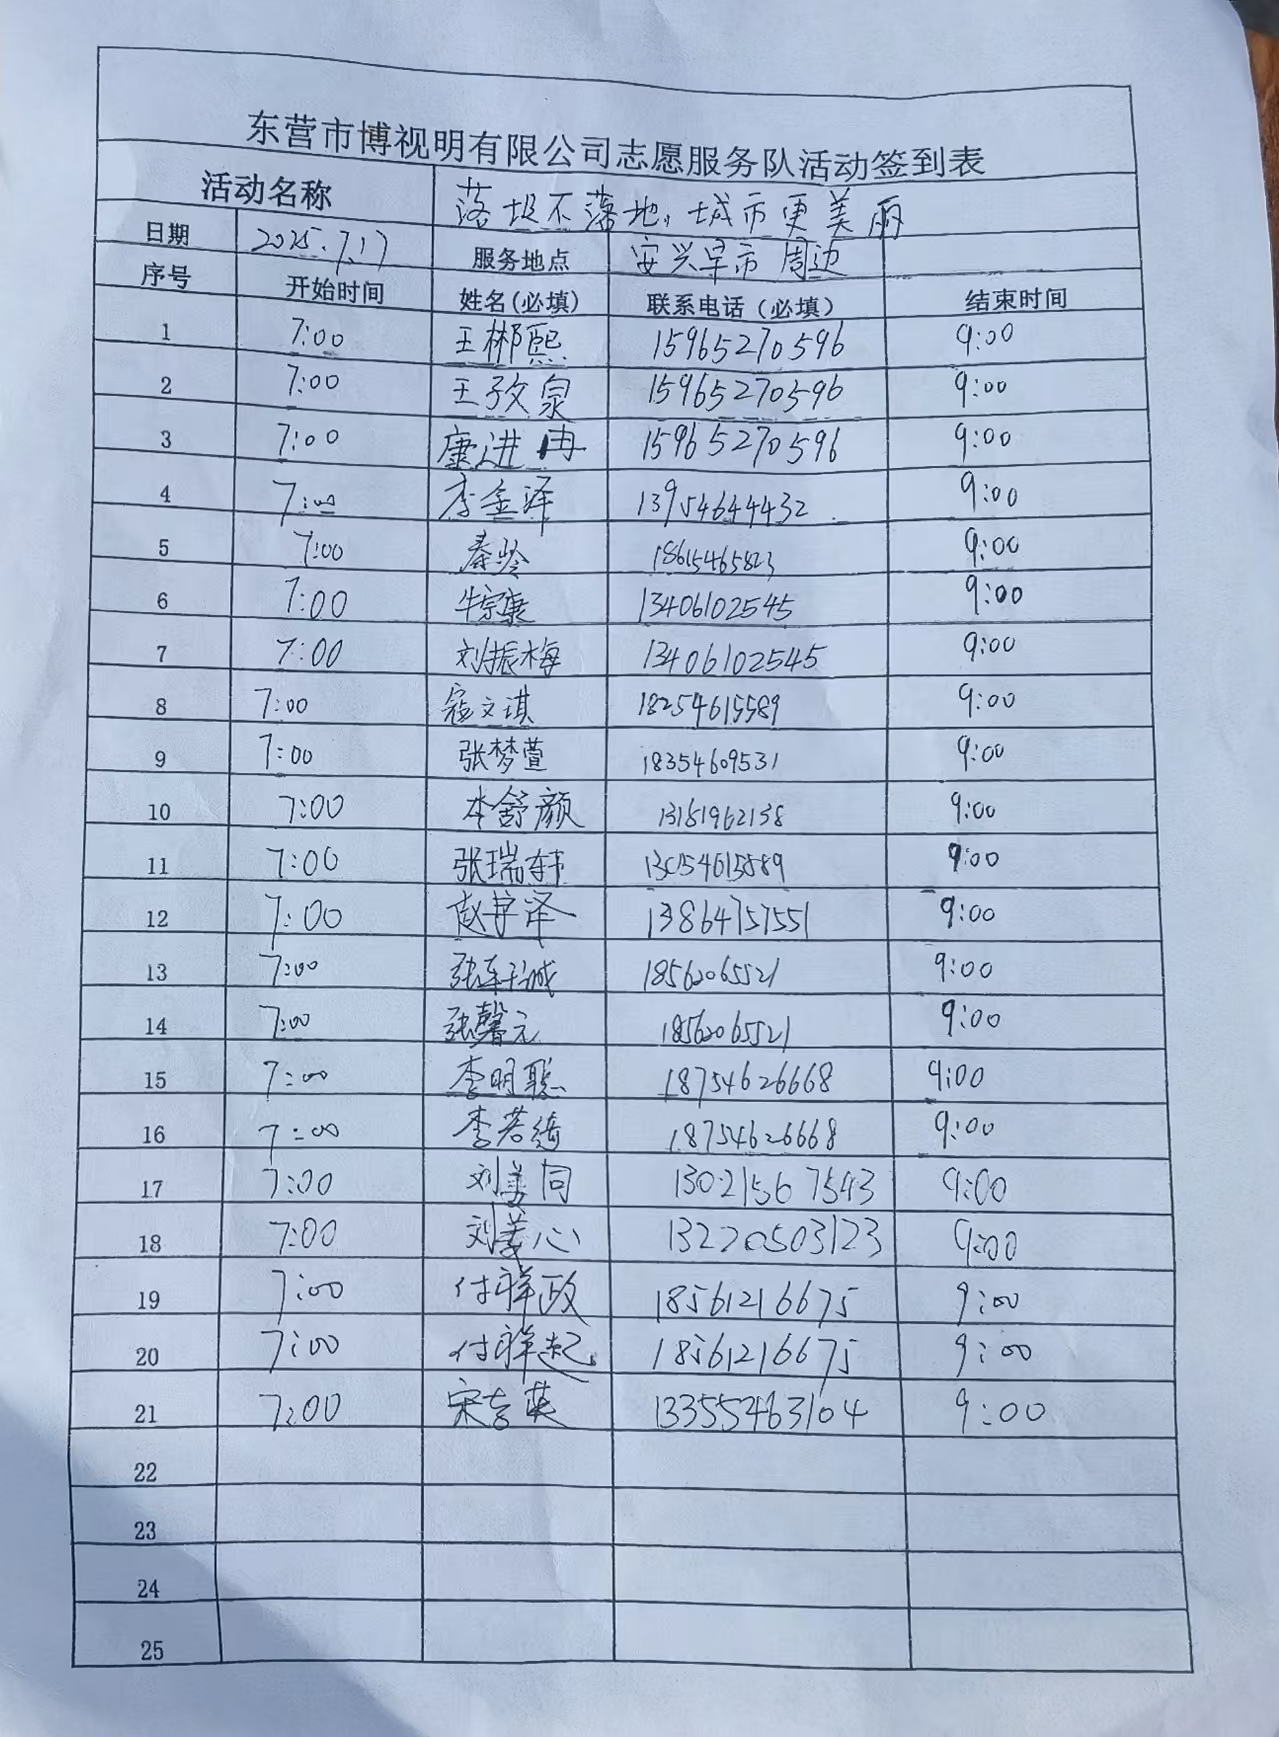 东营市博视明有限公司志愿服务队活动签到表
活动名称 落圾不落地,城市更美丽
日期 2025.7.17 服务地点 安兴早市周边
序号 开始时间 姓名(必填) 联系电话(必填) 结束时间
1 7:00 王郴熙 15965270596 9:00
2 7:00 王孜泉 15965270596 9:00
3 7:00 康进冉 15965270596 9:00
4 7:00 李金泽 13954644432 9:00
5 7:00 秦岭 9:00
6 7:00 牛宗康 13406102545 9:00
7 7:00 刘振梅 13406102545 9:00
8 7:00 寇文琪 18254615589 9:00
9 7:00 张梦萱 18354609531 9:00
10 7:00 李舒颜 9:00
11 7:00 张瑞韩 9:00
12 7:00 赵宇泽 13864757551 9:00
13 7:00 18562065521 9:00
14 7:00 张馨元 18562065521 9:00
15 7:00 李明聪 18754626668 9:00
16 7:00 李若绮 18754626668 9:00
17 7:00 刘姜同 13021567543 9:00
18 7:00 刘姜心 13220503123 9:00
19 7:00 付祥政 18561216675 9:00
20 7:00 付祥起 18561216675 9:00
21 7:00 宋吉英 13355463104 9:00
22
23
24
25